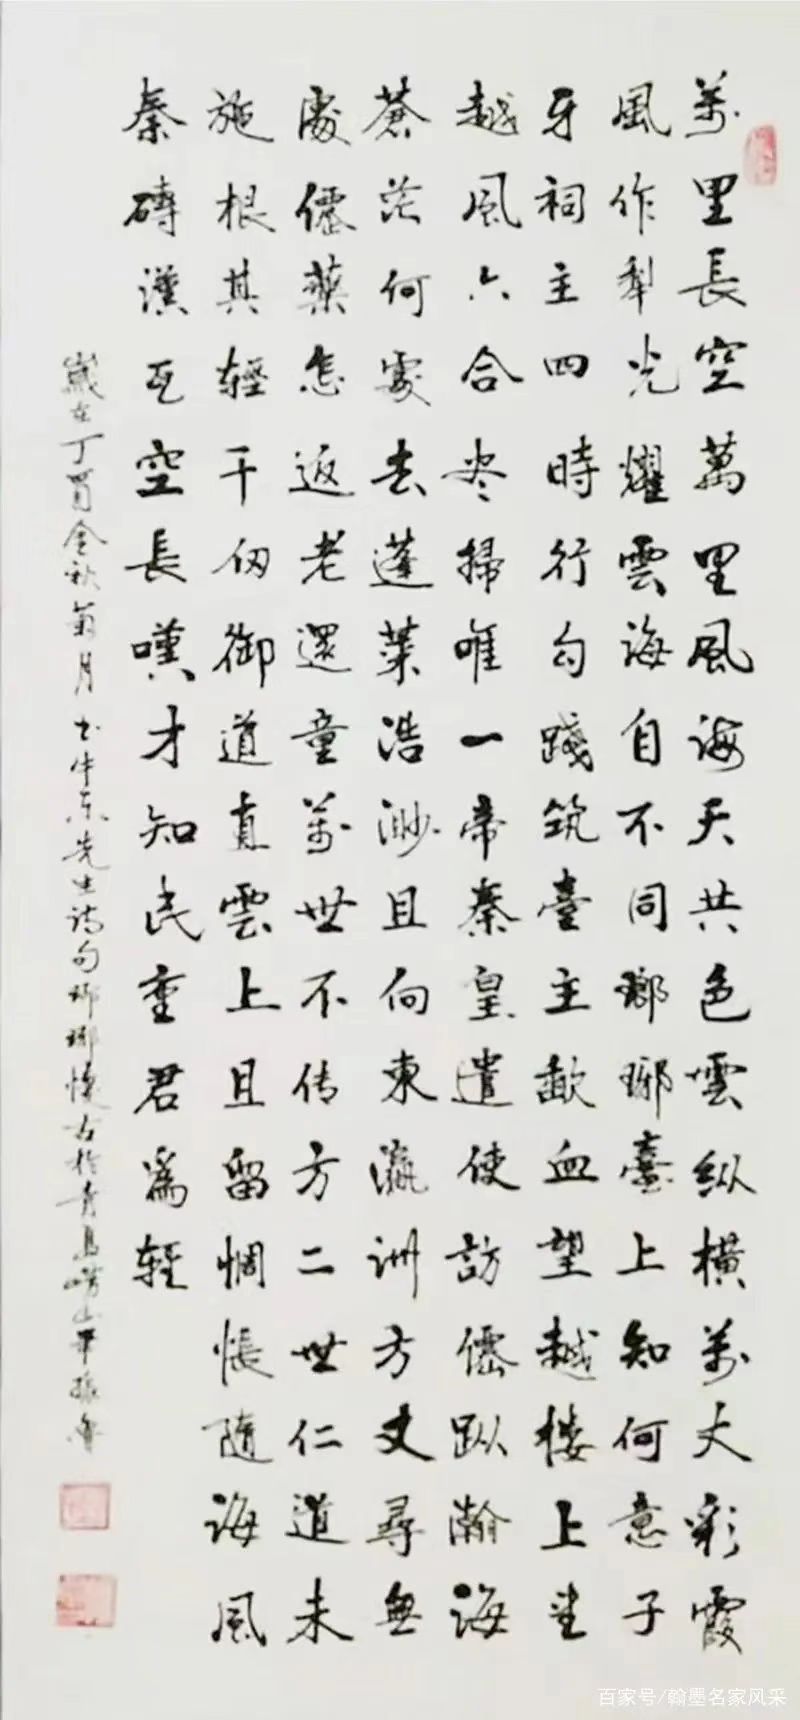 萬里長空萬里風海天共色雲纵橫萬丈彩霞
風作犁光耀雲海自不同瑯琊臺上知何意子
牙祠主四時行勾踐筑臺主歃血望越楼上望
越風六合尽掃唯一帝秦皇遣使訪僊踪瀚海
蒼茫何處去蓬萊浩渺且向東瀛洲方丈尋無
處僊藥怎返老還童萬世不传方二世仁道未
施根其輕千仞御道直雲上且留惆悵隨海風
秦磚漢瓦空長嘆才知民重君為輕
歲在丁酉金秋菊月书牛东先生诗句瑯琊懷古於青島崂山畢振魯
百家号/翰墨名家风采